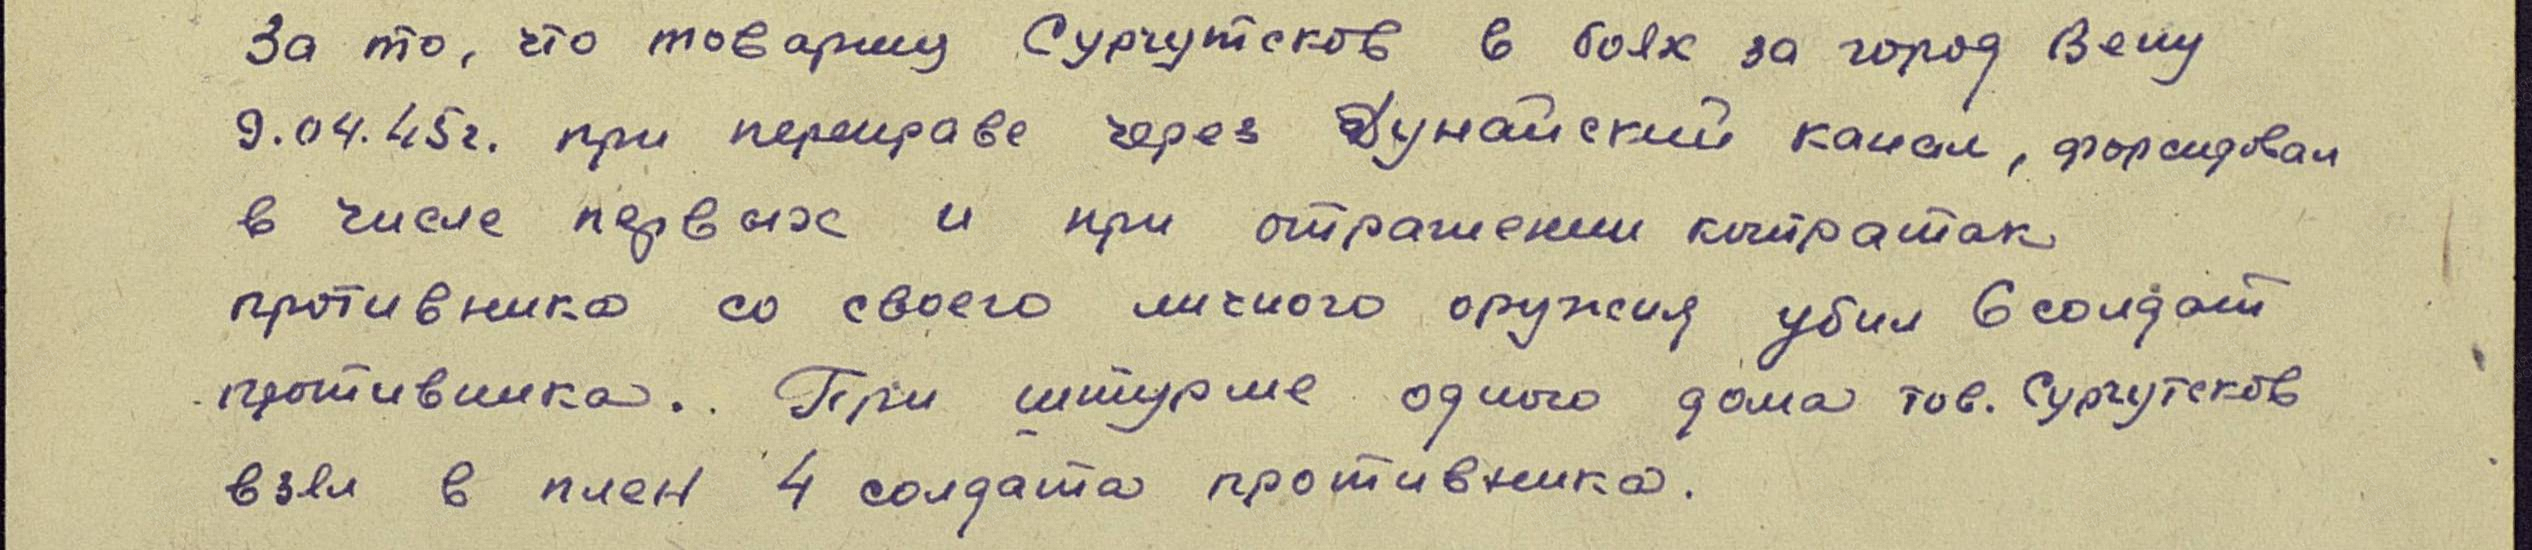 За то, что товарищ Сургутсков в боях за город Вену
9.04.45г. при переправе через Дунайский канал, форсировал
в числе первых и при отражении контратак
противника со своего личного оружия убил 6 солдат
противника. При штурме одного дома тов. Сургутсков
взял в плен 4 солдата противника.